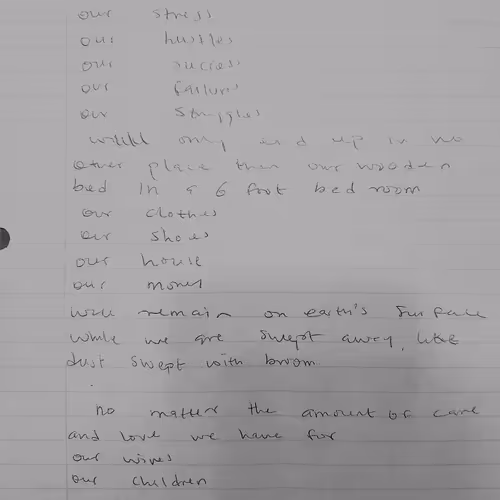 our stress
our hustles
our success
our failures
our struggles
will only end up in no
other place then our wooden
bed in a 6 foot bed room
our clothes
our shoes
our house
our money
will remain on earth's surface
while we are swept away, like
dust swept with broom.
no matter the amount of care
and love we have for
our wives
our children